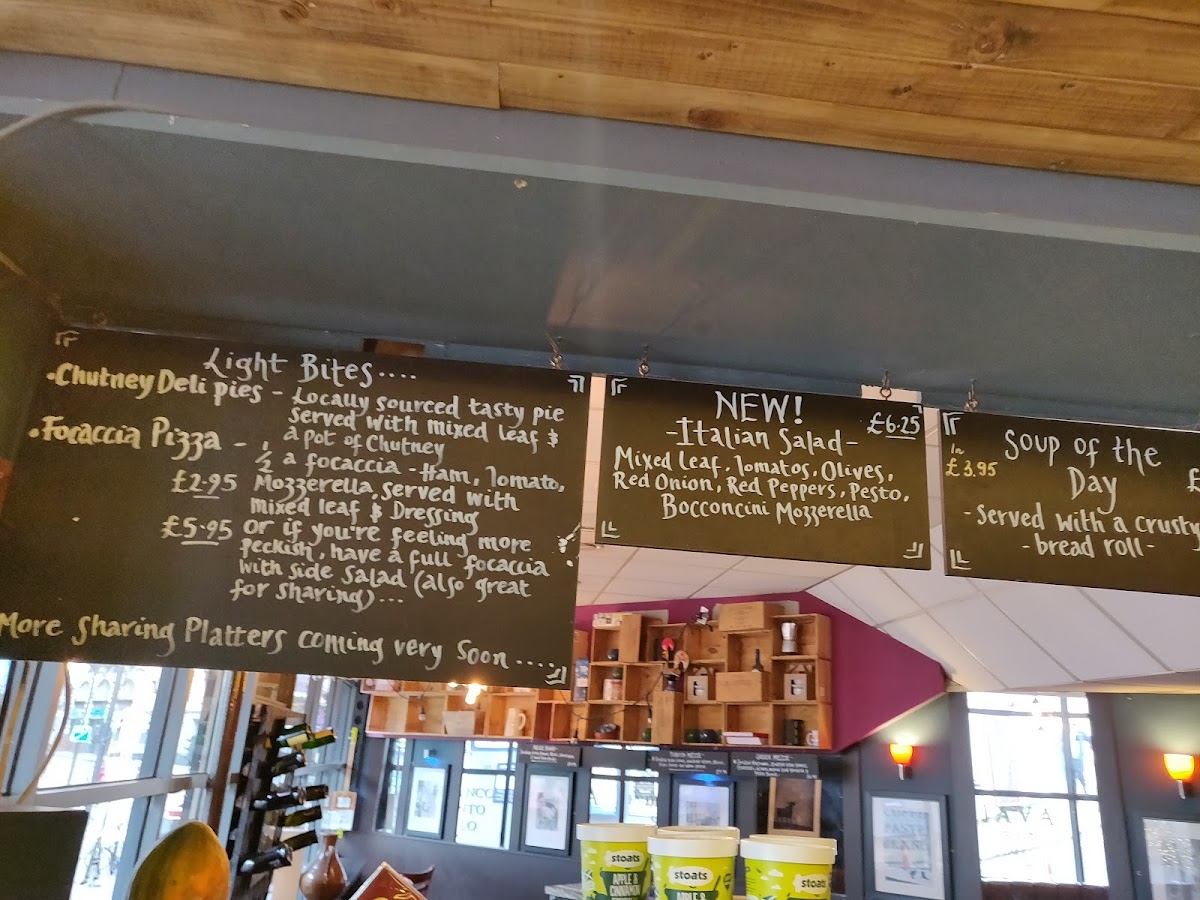 Light Bites....
•Chutney Deli pies - Locally sourced tasty pie
served with mixed leaf &
a pot of Chutney
•Focaccia Pizza -
½ a focaccia - Ham, Tomato,
£2.95 Mozzerella, served with
mixed leaf & Dressing
£5.95 or if you're feeling more
peckish, have a full focaccia
with side salad (also great
for sharing)...
More sharing Platters coming very soon....
NEW!
£6.25
-Italian Salad-
Mixed Leaf, Tomatos, Olives,
Red Onion, Red Peppers, Pesto,
Bocconcini Mozzerella
Soup of the
Day
In
£3.95
£
-Served with a crusty
-bread roll-
stoats
APPLE &
CINNAMON
stoats
APPLE &
stoats